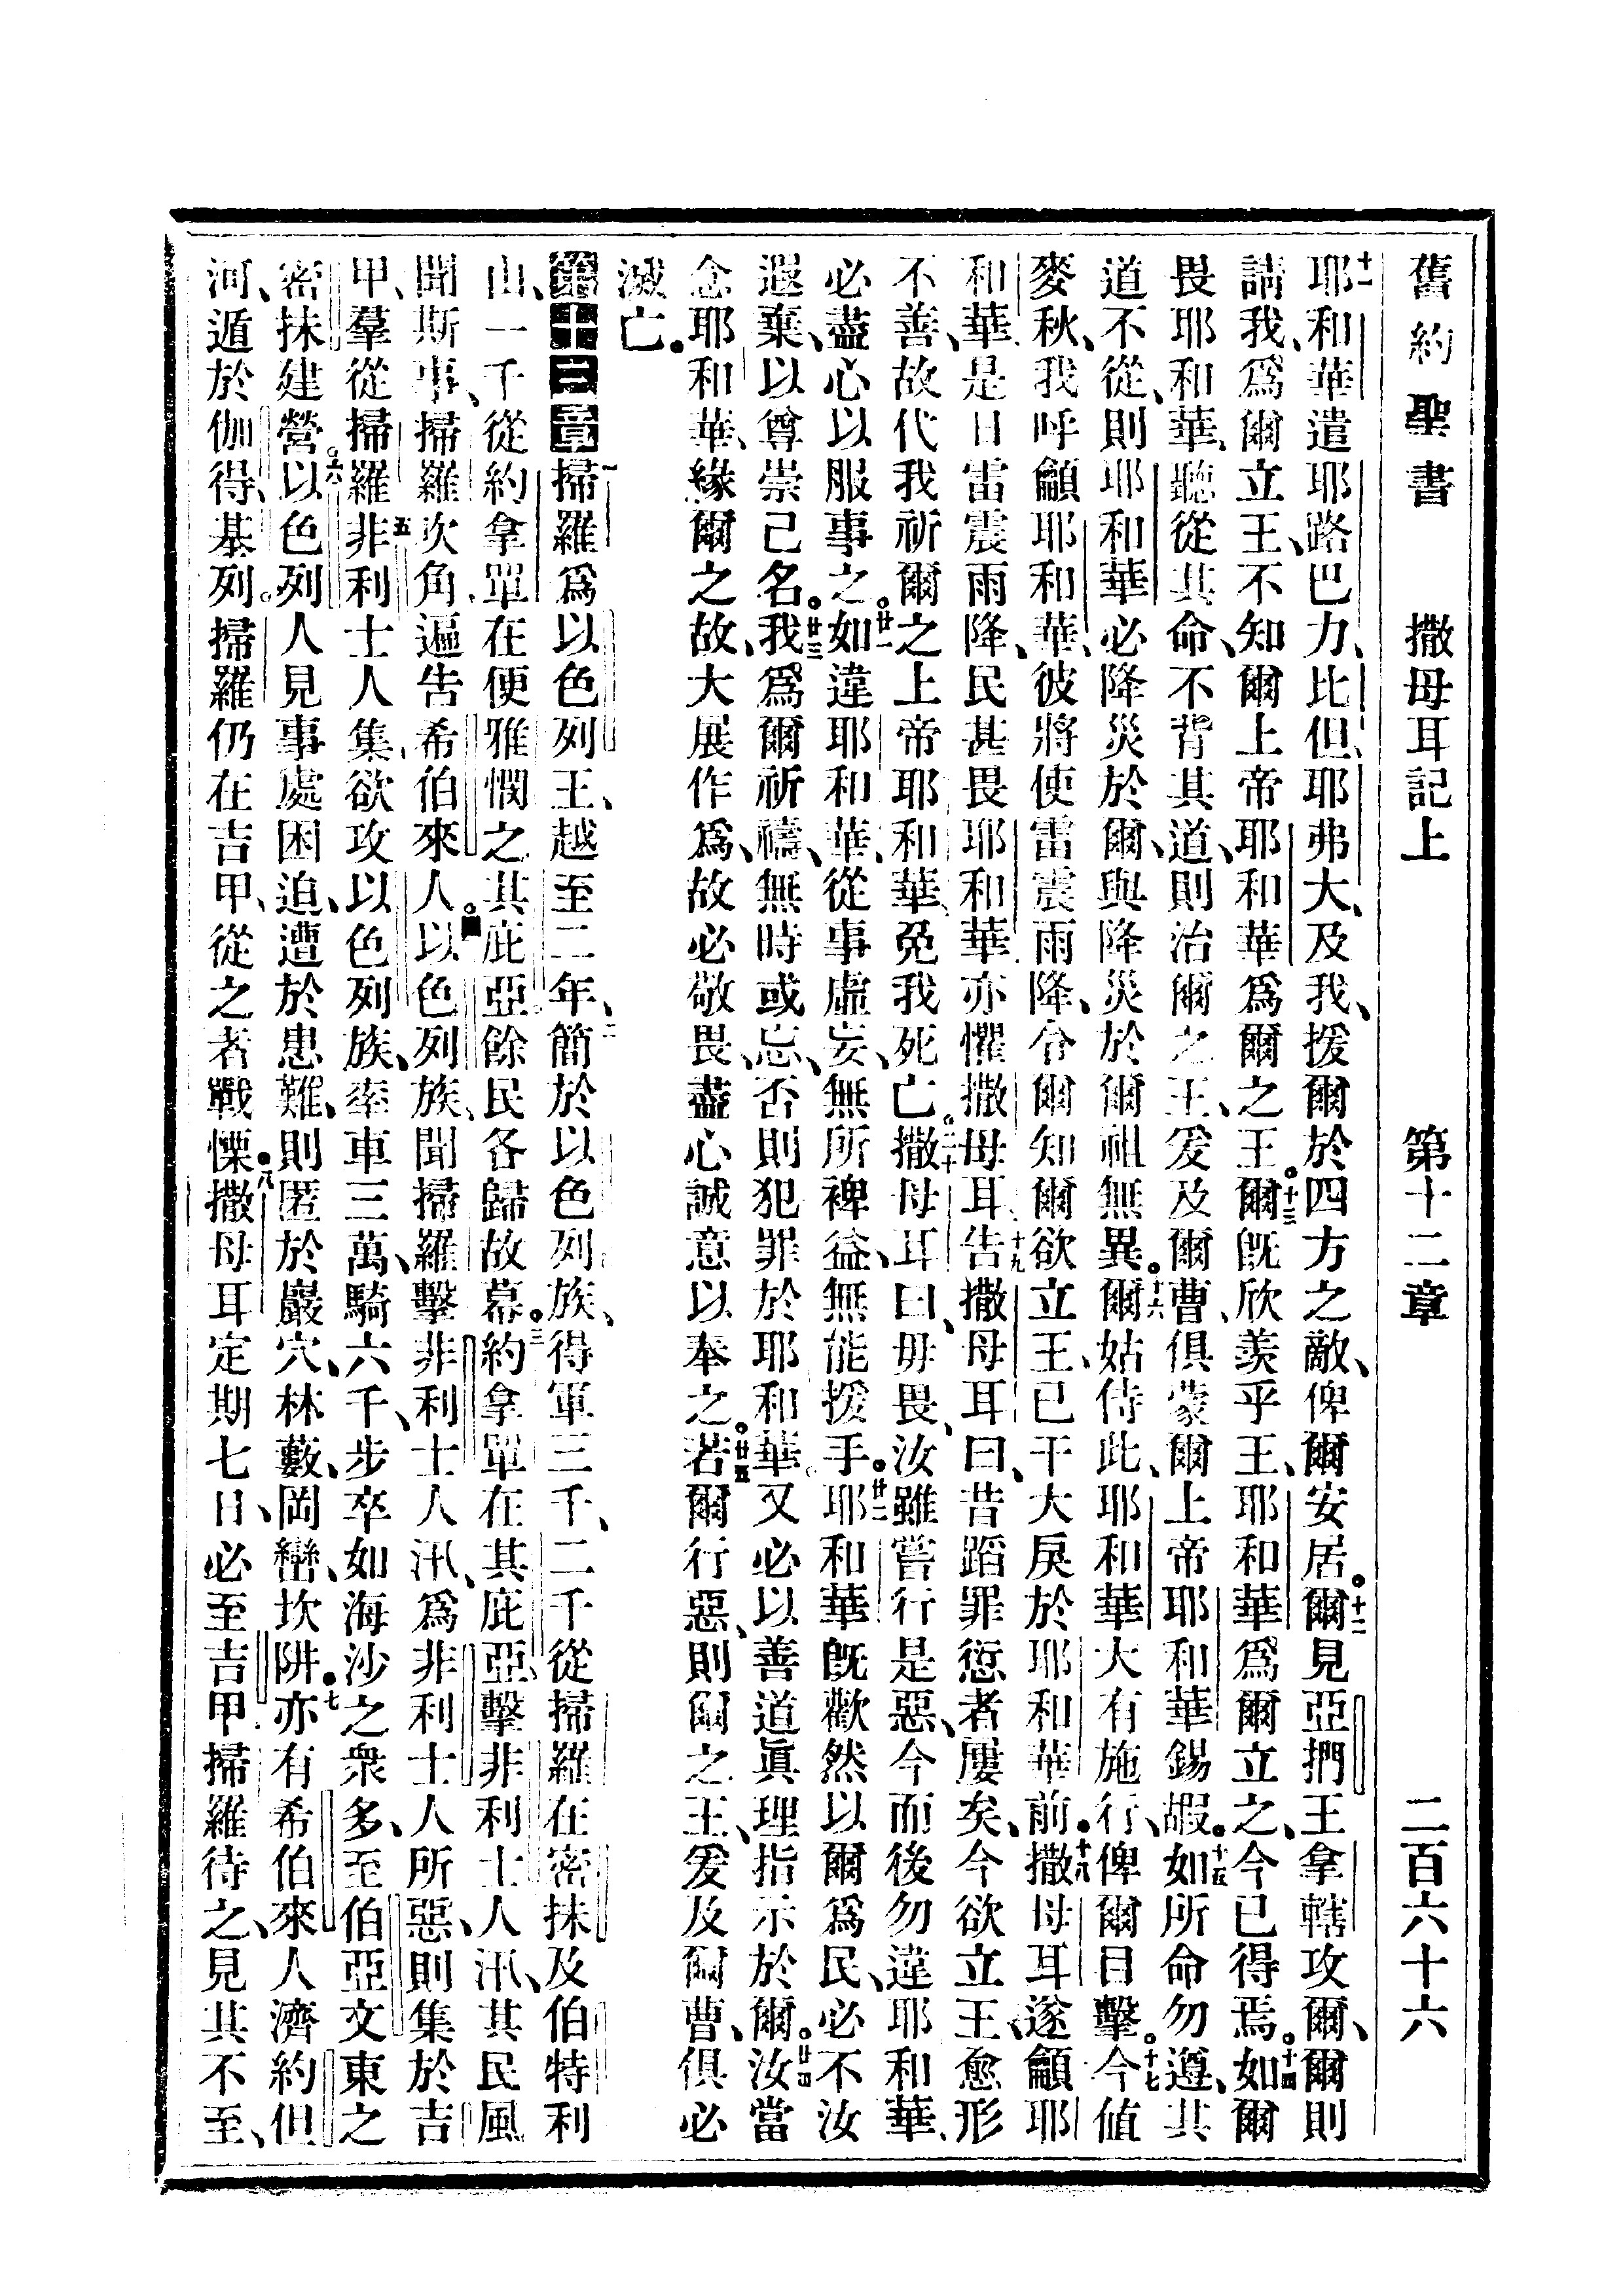 舊約聖書 撒母耳記上 第十二章 二百六十六
十一耶和華遣耶路巴力、比但、耶弗大、及我、援爾於四方之敵、俾爾安居。十二爾見亞捫王拿轄攻爾、爾則
請我、爲爾立王、不知爾上帝耶和華爲爾之王。十三爾旣欣羨乎王、耶和華爲爾立之、今已得焉。十四如爾
畏耶和華、聽從其命、不背其道、則治爾之王、爰及爾曹、俱蒙爾上帝耶和華錫嘏。十五如所命勿遵、其
道不從、則耶和華必降災於爾、與降災於爾祖無異。十六爾姑侍此、耶和華大有施行、俾爾目擊。十七今値
麥秋、我呼籲耶和華、彼將使雷震雨降、令爾知爾欲立王、已干大戾於耶和華前。十八撒母耳遂籲耶
和華、是日雷震雨降、民甚畏耶和華、亦懼撒母耳、十九告撒母耳曰、昔蹈罪愆者屢矣、今欲立王、愈形
不善、故代我祈爾之上帝耶和華、免我死亡。二十撒母耳曰、毋畏、汝雖嘗行是惡、今而後勿違耶和華、
必盡心以服事之。廿一如違耶和華、從事虛妄、無所裨益、無能援手。廿二耶和華旣歡然以爾爲民、必不汝
遐棄、以尊崇己名。廿三我爲爾祈禱、無時或忘、否則犯罪於耶和華。又必以善道眞理指示於爾。廿四汝當
念耶和華、緣爾之故、大展作爲、故必敬畏、盡心誠意以奉之。廿五若爾行惡、則爾之王、爰及爾曹、俱必
滅亡。
第十三章一掃羅爲以色列王、越至二年、二簡於以色列族、得軍三千、二千從掃羅在密抹及伯特利
山、一千從約拿單在便雅憫之其庇亞、餘民各歸故幕。三約拿單在其庇亞、擊非利士人汛、其民風
聞斯事、掃羅吹角、遍告希伯來人。以色列族、聞掃羅擊非利士人汛、爲非利士人所惡、則集於吉
甲、羣從掃羅。五非利士人集、欲攻以色列族、率車三萬、騎六千、步卒如海沙之衆多、至伯亞文東之
密抹建營。六以色列人見事處困迫、遭於患難、則匿於巖穴、林藪、岡巒、坎阱。七亦有希伯來人濟約但
河、遁於伽得、基列。掃羅仍在吉甲、從之者戰慄。八撒母耳定期七日、必至吉甲、掃羅待之、見其不至、